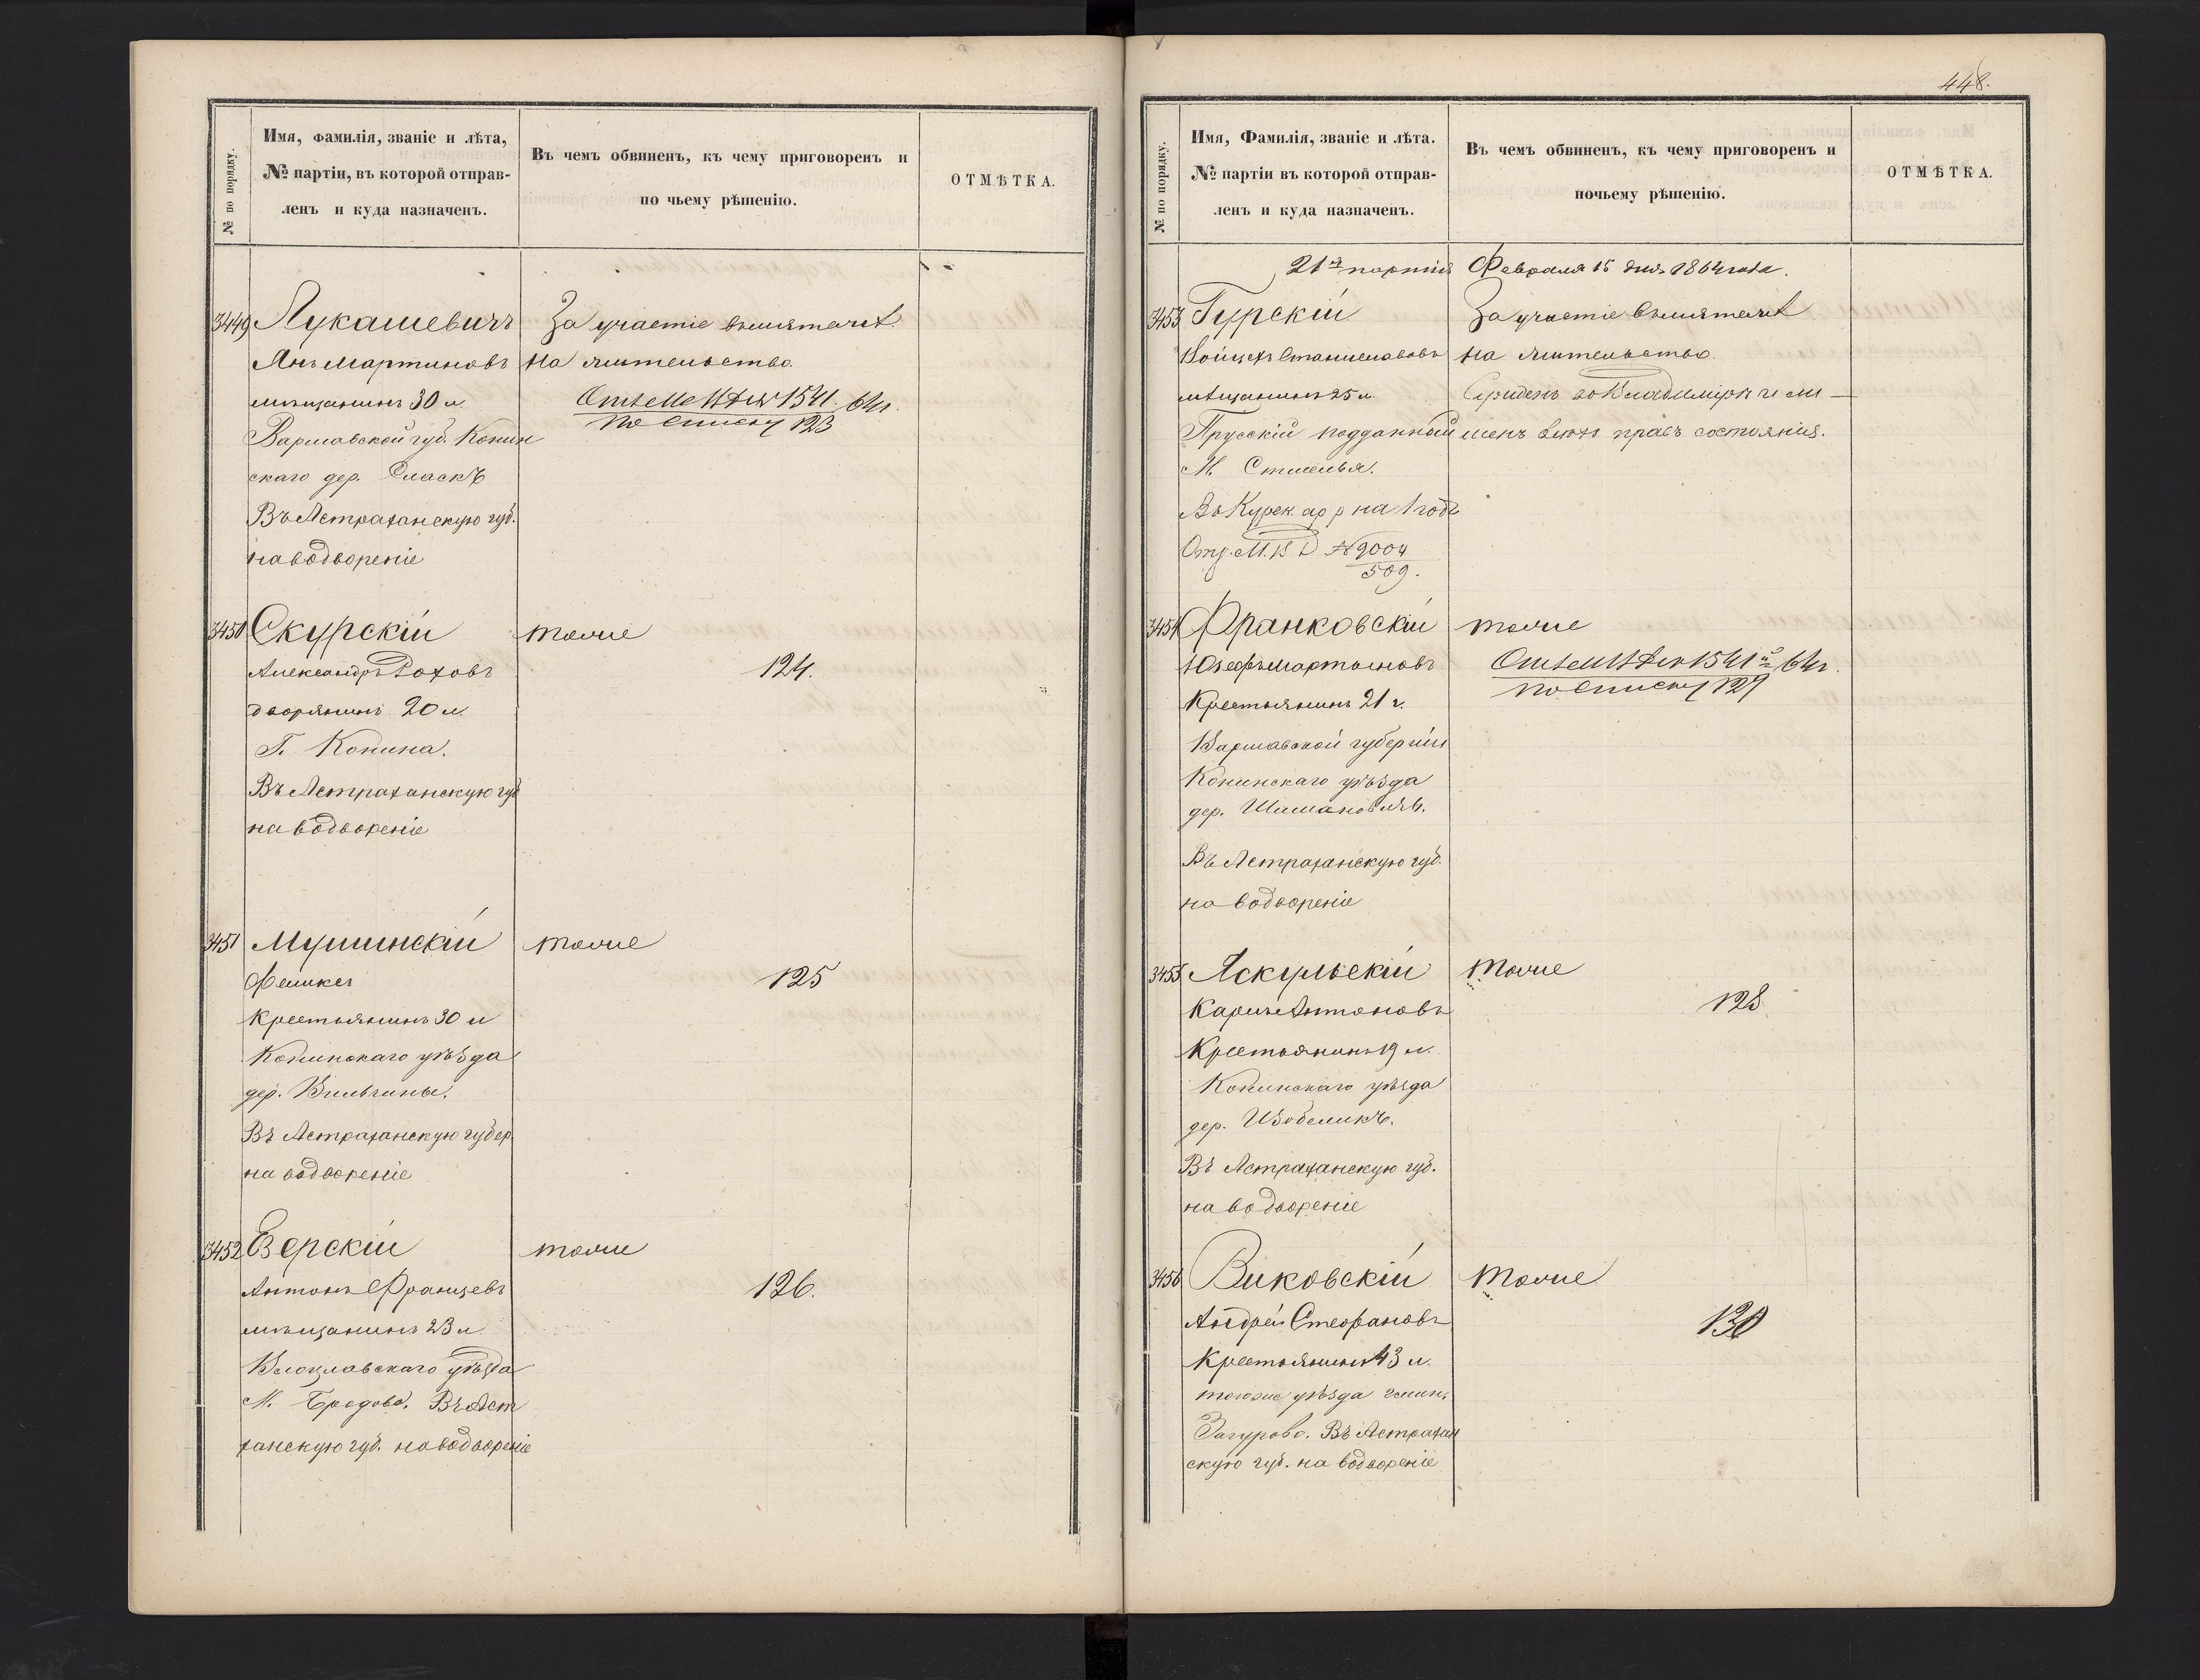 № по порядку.
Имя, фамилія, званіе и лѣта,
№ партіи, въ которой отправ-
ленъ и куда назначенъ.
Въ чемъ обвиненъ, къ чему приговоренъ и
по чьему рѣшенію.
ОТМѢТКА.
3449
Лукашевичъ
Янъ Мартиновъ
мѣщанинъ 30 л.
Варшавской губ. Конин
скаго дер. Сласкъ
Въ Астраханскую губ.
на водвореніе
За участіе въ мятежѣ.
на жительство.
1541
по списку 123
3450
Скурскій
Александръ Роховъ
дворянинъ 20 л.
Г. Конина.
Въ Астраханскую губ
на водвореніе
тоже
124.
3451
Мушинскій
Феликсъ
Крестьянинъ 30 л
Конинскаго уѣзда
дер. Вильчины.
Въ Астраханскую губер.
на водвореніе
тоже
125
3452
Езерскій
Антонъ Францевъ
мѣщанинъ 23 л
Влоцлавскаго уѣзда
М. Бродово. Въ Аст
ханскую губ. на водвореніе
тоже
126.
448.
№ по порядку.
Имя, Фамилія, званіе и лѣта.
№ партіи въ которой отправ-
ленъ и куда назначенъ.
Въ чемъ обвиненъ, къ чему приговоренъ и
почьему рѣшенію.
ОТМѢТКА.
21я партія Февраля 15 дня 1864 года.
3453
Гурскій
Войцехъ Станиславовъ
мѣщанинъ 25 л.
Прусскій подданный
М.
Въ Курск. ар р на 1 годъ
От. М. В Д № 9004
509.
За участіе въ мятежѣ
на жительство.
Сужденъ во Владимірѣ и ли-
шенъ всѣхъ правъ состоянія.
3454
Франковскій
Юзефъ Мартыновъ
Крестьянинъ 21 г.
Варшавской губерніи
Конинскаго уѣзда
дер.
Въ Астраханскую губ.
на водвореніе
тоже
1541
по списку 127
3455
Яскульскій
Карлъ Антоновъ
Крестьянинъ 19 л.
Конинскаго уѣзда
дер.
Въ Астраханскую губ.
на водвореніе
тоже
128
3456
Виковскій
Андрей Стефановъ
Крестьянинъ 43 л.
тогоже уѣзда гмин.
Загурово. Въ Астрахан
скую губ. на водвореніе
тоже
130